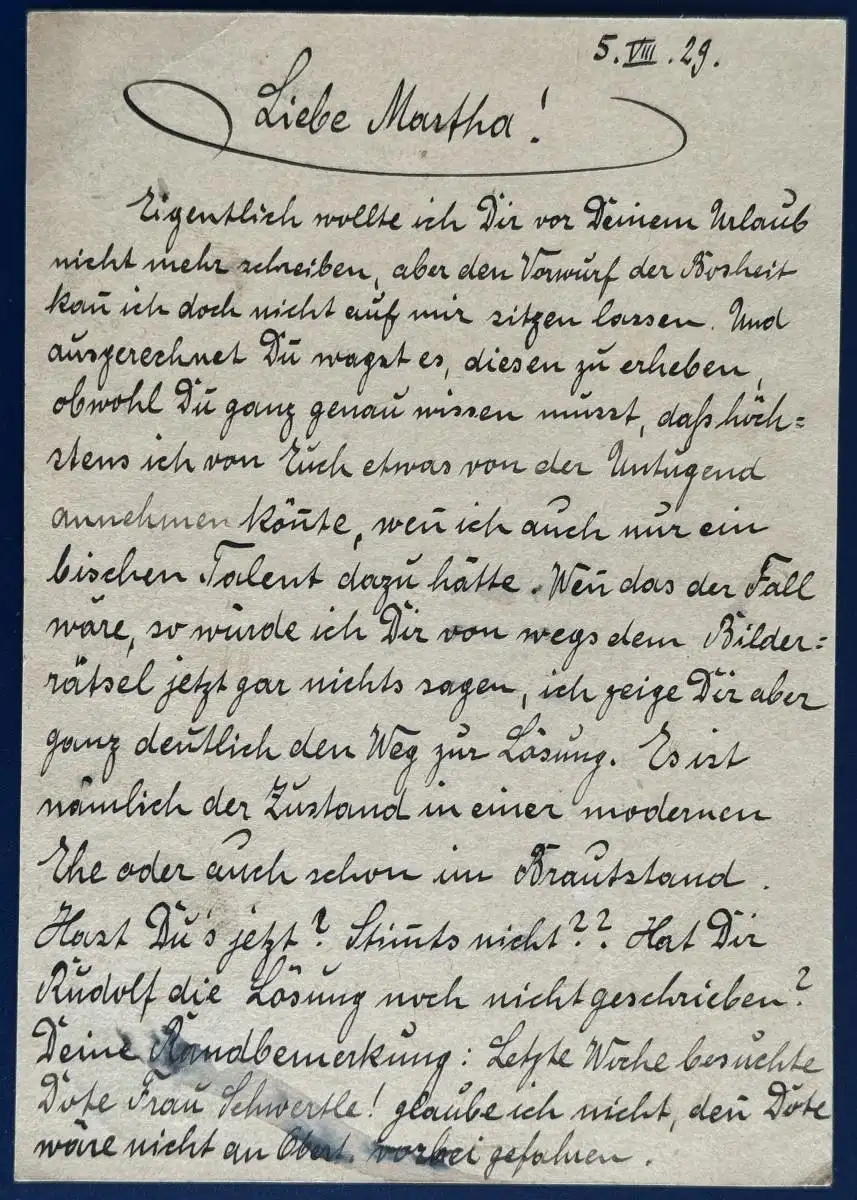 5. VIII. 29.
Liebe Martha!
Eigentlich wollte ich Dir vor Deinem Urlaub
nicht mehr schreiben, aber den Vorwurf der Bosheit
kan̄ ich doch nicht auf mir sitzen lassen. Und
ausgerechnet Du wagst es, diesen zu erheben,
obwohl Du ganz genau wissen musst, daß höch=
stens ich von Euch etwas von der Untugend
annehmen kön̄te, wen̄ ich auch nur ein
bischen Talent dazu hätte. Wen̄ das der Fall
wäre, so würde ich Dir von wegs dem Bilder=
rätsel jetzt gar nichts sagen, ich zeige Dir aber
ganz deutlich den Weg zur Lösung. Es ist
nämlich der Zustand in einer modernen
Ehe oder auch schon im Brautstand.
Hast Du's jetzt? Stim̄ts nicht?? Hat Dir
Rudolf die Lösung noch nicht geschrieben?
Deine Randbemerkung: Letzte Woche besuchte
Dote Frau Schwertle! glaube ich nicht, den̄ Dote
wäre nicht an Obert. vorbei gefahren.